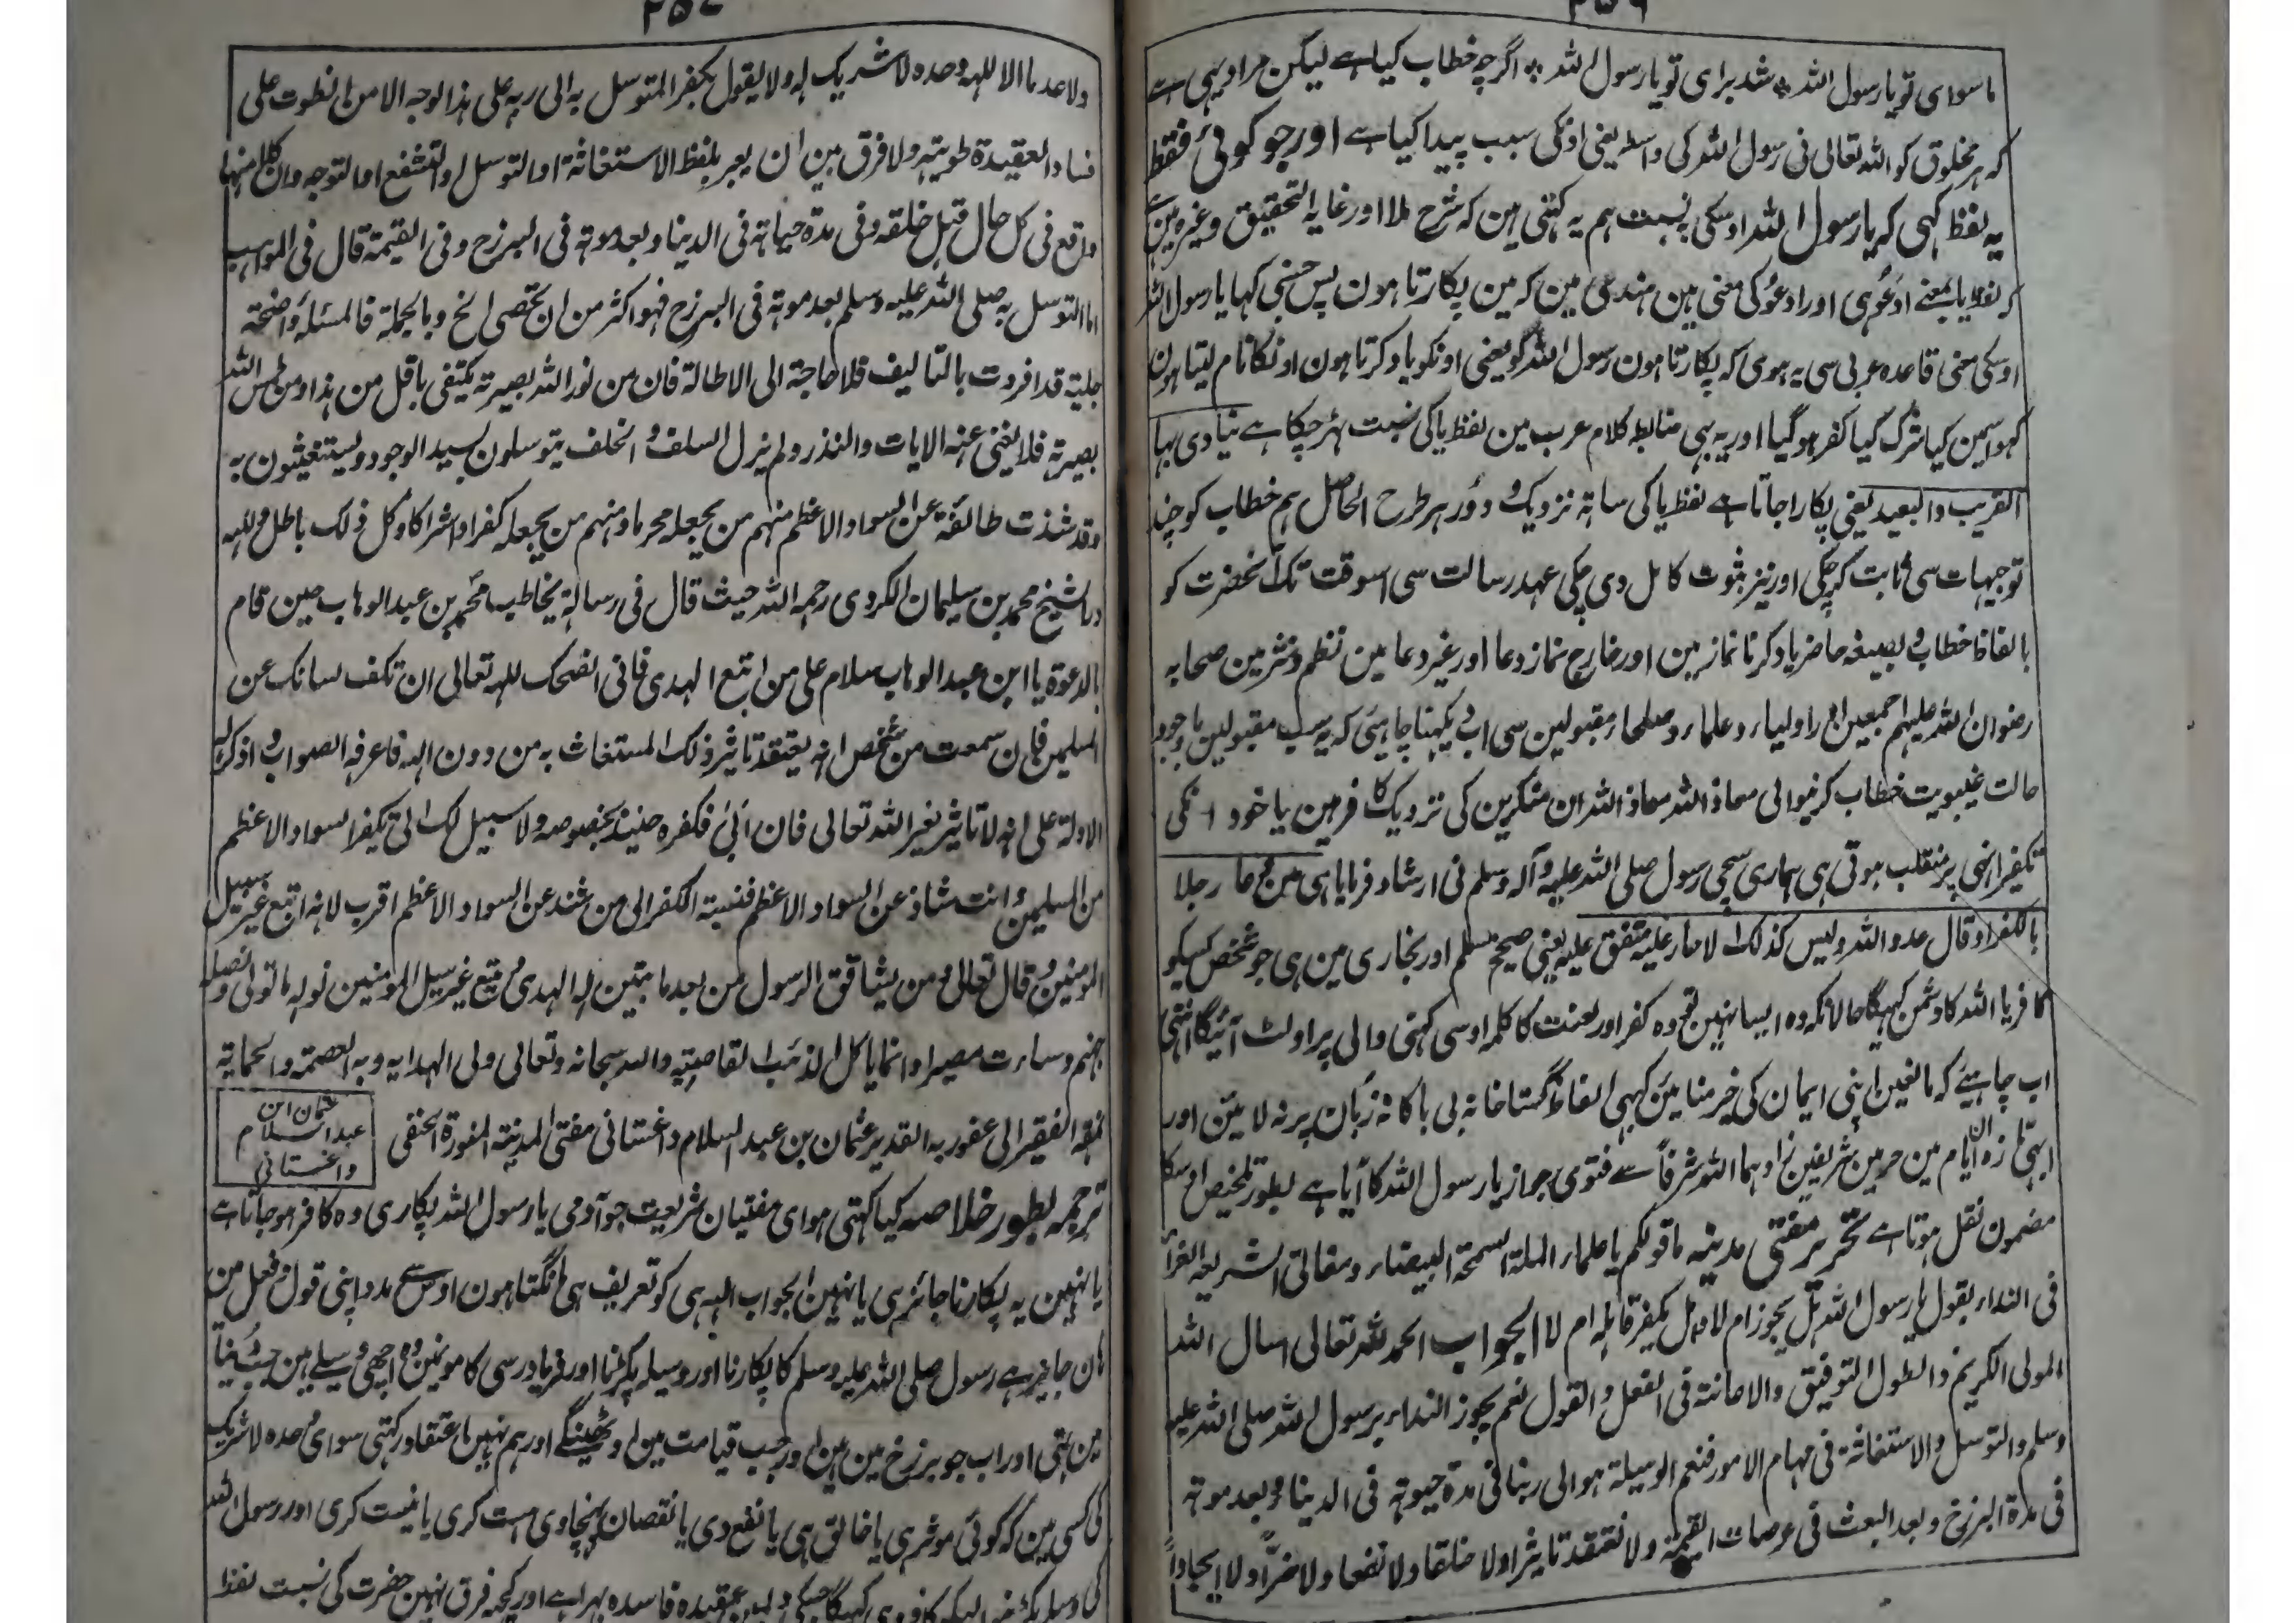 ۲۵۶
ماسوای تو یا رسول اللہ ٭ شد برای تو یا رسول اللہ ٭ اگرچہ خطاب کیا ہے لیکن مراد یہی ہے
کہ ہر مخلوق کو اللہ تعالی نی رسول اللہ کی واسطے یعنی اونکی سبب پیدا کیا ہے اور جو کوئی فقط
یہ لفظ کہی کہ یا رسول اللہ اوسکی نسبت ہم یہ کہتی ہین کہ شرح ملا اور غایۃ التحقیق وغیرہ مین ہے
کہ لفظ یا بمعنے ادعو ہی اور ادعو کی معنی ہین ہندی مین کہ مین پکارتا ہون پس جسنی کہا یا رسول اللہ
اوسکی معنی قاعدہ عربی سی یہ ہوی کہ پکارتا ہون رسول اللہ کو یعنی اونکو یاد کرتا ہون اونکا نام لیتا ہون
کہو اسمین کیا شرک کیا کفر ہو گیا اور یہ بہی ضابطہ کلام عرب مین لفظ یا کی نسبت ٹہر چکا ہے ینادی بہا
القریب والبعید یعنی پکارا جاتا ہے لفظ یا کی ساتہ نزدیک و دور ہر طرح الحاصل ہم خطاب کو چند
توجیہات سی ثابت کر چکی اور نیز ثبوت کامل دی چکی عہد رسالت سی اسوقت تک آنحضرت کو
بالفاظ خطاب و بصیغہ حاضر یاد کرنا نماز مین اور خارج نماز دعا اور غیر دعا مین نظم و نثر مین صحابہ
رضوان اللہ علیہم اجمعین اور اولیاء و علماء و صلحاء مقبولین سی اب یہ کہنا چاہیئی کہ یہ سب مقبولین باوجود
حالت غیبوبیت خطاب کرنیوالی معاذ اللہ معاذ اللہ ان منکرین کی نزدیک کافر ہین یا خود انکی
تکفیر انہی پر منقلب ہوتی ہی ہماری سچی رسول صلی اللہ علیہ وآلہ وسلم نی ارشاد فرمایا ہی من دعا رجلا
بالکفر او قال عدو اللہ ولیس کذلک الا حار علیہ متفق علیہ یعنی صحیح مسلم اور بخاری مین ہی جو شخص کسیکو
کافر یا اللہ کا دشمن کہیگا حالانکہ وہ ایسا نہین تو وہ کفر اور لعنت کا کلمہ اوسی کہنی والی پر اولٹ آئیگا انتہی
اب چاہیئے کہ مانعین اپنی ایمان کی خیر منائین کہہی الفاظ گستاخانہ بی باکانہ زبان پر نہ لائین اور
ابہی تازہ ان ایام مین حرمین شریفین زادہما اللہ شرفاً سے فتوی جواز یا رسول اللہ کا آیا ہے بطور تلخیص اوسکا
مضمون نقل ہوتا ہے تحریر مفتی مدینہ ماقولکم یا علماء الملۃ السمحۃ البیضاء ومفاتی الشریعۃ الغراء
فی النداء بقول یا رسول اللہ ہل یجوز ام لا وہل یکفر قائلہ ام لا الجواب الحمد للہ تعالی اسال اللہ
المولی الکریم ذا الطول التوفیق والاعانۃ فی الفعل والقول نعم یجوز النداء برسول اللہ صلی اللہ علیہ
وسلم والتوسل والاستغاثۃ فی مہام الامور فنعم الوسیلۃ ہو الی ربنا فی مدۃ حیوتہ فی الدنیا وبعد موتہ
فی مدۃ البرزخ وبعد البعث فی عرصات القیمۃ ولا نعتقد تاثیرا ولا خلقا ولا نفعا ولا ضراً ولا ایجاداً
۲۵۷
ولا عدما الا للہ وحدہ لا شریک لہ ولا یقول بکفر المتوسل بہ الی ربہ علی ہذا الوجہ الا من انطوت علی
فساد العقیدۃ طویتہ ولا فرق بین ان یعبر بلفظ الاستغاثۃ او التوسل او التشفع او التوجہ وان کلا منہا
واقع فی کل حال قبل خلقہ وفی مدۃ حیاتہ فی الدنیا وبعد موتہ فی البرزخ وفی القیمۃ قال فی المواہب
اما التوسل بہ صلی اللہ علیہ وسلم بعد موتہ فی البرزخ فہو اکثر من ان یحصی الخ وبالجملۃ فالمسئلۃ واضحۃ
جلیۃ قد افردت بالتالیف فلا حاجۃ الی الاطالۃ فان من نور اللہ بصیرتہ یکتفی باقل من ہذا ومن طمس اللہ
بصیرتہ فلا یغنی عنہ الایات والنذر ولم یزل السلف والخلف یتوسلون بسید الوجود ویستغیثون بہ
وقد شذت طائفۃ عن السواد الاعظم منہم من یجعلہ محرما ومنہم من یجعلہ کفرا واشراکا وکل ذلک باطل وللہ
در الشیخ محمد بن سلیمان الکردی رحمہ اللہ حیث قال فی رسالۃ یخاطب محمد بن عبد الوہاب حین قام
بالدعوۃ یا ابن عبد الوہاب سلام علی من اتبع الہدی فانی انصحک للہ تعالی ان تکف لسانک عن
المسلمین فان سمعت من شخص انہ یعتقد تاثیر ذلک المستغاث بہ من دون اللہ فاعرفہ الصواب واذکر لہ
الادلۃ علی انہ لا تاثیر لغیر اللہ تعالی فان ابی فکفرہ حینئذ بخصوصہ ولا سبیل لک الی تکفیر السواد الاعظم
من المسلمین وانت شاذ عن السواد الاعظم فنسبۃ الکفر الی من شذ عن السواد الاعظم اقرب لانہ اتبع غیر سبیل
المومنین وقال تعالی ومن یشاقق الرسول من بعد ما تبین لہ الہدی ویتبع غیر سبیل المؤمنین نولہ ما تولی ونصلہ
جہنم وساءت مصیرا وانما یاکل الذئب القاصیۃ واللہ سبحانہ وتعالی ولی الہدایہ وبہ العصمۃ والحمایۃ
نمقہ الفقیر الی عفو ربہ القدیر عثمان بن عبد السلام داغستانی مفتی المدینۃ المنورۃ الحنفی
عثمان ابن
عبد السلام
داغستانی
ترجمہ بطور خلاصہ کیا کہتی ہو ای مفتیان شریعت جو آدمی یا رسول اللہ پکاری وہ کافر ہو جاتا ہے
یا نہین یہ پکارنا جائز ہی یا نہین الجواب اللہ ہی کو تعریف ہی مانگتا ہون اوس سے مدد اپنی قول و فعل مین
ہان جایز ہے رسول صلی اللہ علیہ وسلم کا پکارنا اور وسیلہ پکڑنا اور فریاد رسی کاموںمین وہ اچہی وسیلے ہین جب دنیا
مین تہی اور اب جو برزخ مین ہین اور جب قیامت مین اوٹھینگے اور ہم نہین اعتقاد رکہتی سوای وحدہ لا شریک
کی کسی مین کہ کوئی موثر ہی یا خالق ہی یا نفع دی یا نقصان پہنچاوی ہست کری یا نیست کری اور رسول اللہ
عقیدہ فاسدہ بہرا ہے اور کچہ فرق نہین حضرت کی نسبت لفظ